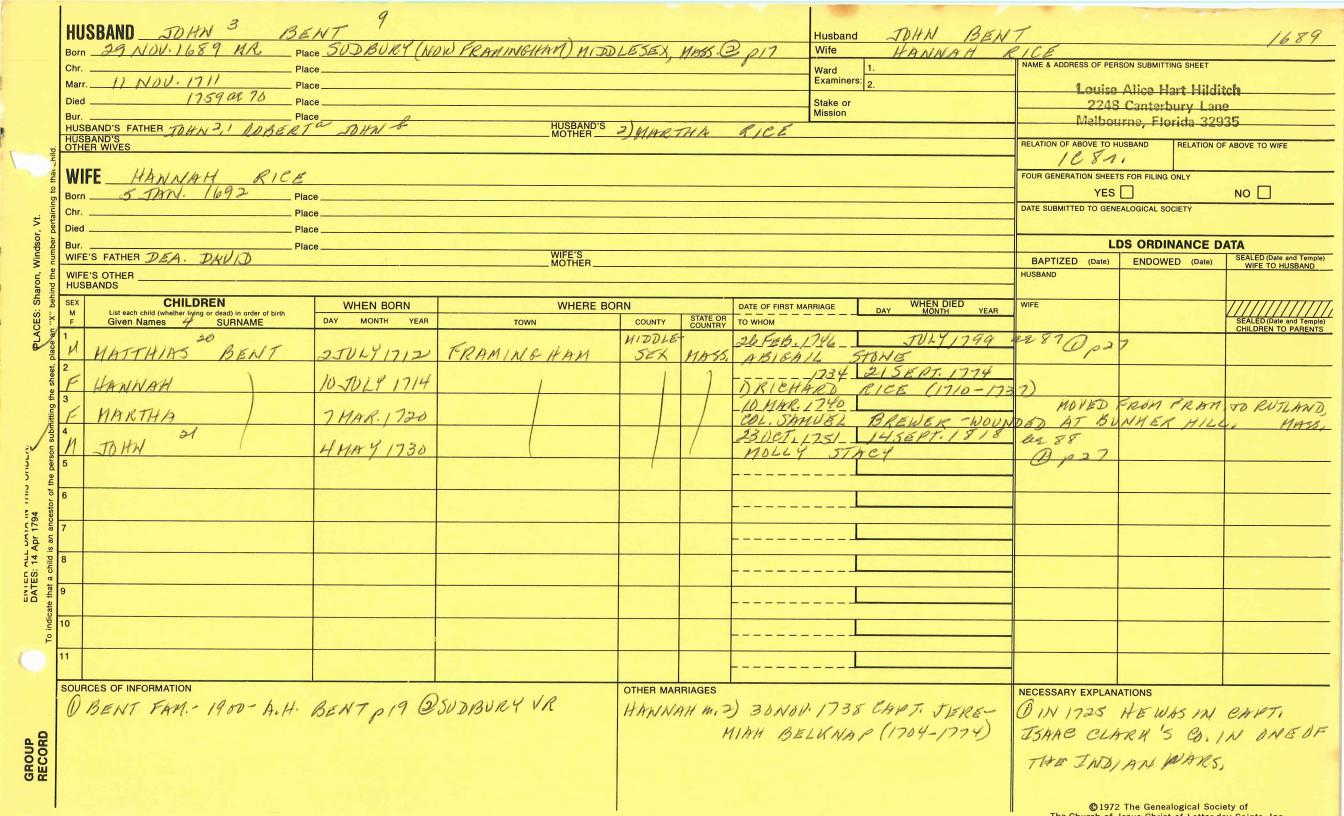 HUSBAND JOHN 3 BENT 9
Born 29 NOV. 1689 NR. Place SUDBURY (NOW FRAMINGHAM) MIDDLESEX, MASS. ② p17
Chr. Place
Marr. 11 NOV. 1711 Place
Died 1759 ae 70 Place
Bur. Place
HUSBAND'S FATHER JOHN 2,1 ROBERT a JOHN b HUSBAND'S MOTHER 2) MARTHA RICE
HUSBAND'S OTHER WIVES
Husband JOHN BENT 1689
Wife HANNAH RICE
Ward Examiners: 1.
2.
Stake or Mission
NAME & ADDRESS OF PERSON SUBMITTING SHEET
Louise Alice Hart Hilditch
2248 Canterbury Lane
Melbourne, Florida 32935
RELATION OF ABOVE TO HUSBAND RELATION OF ABOVE TO WIFE
1C 8r.
FOUR GENERATION SHEETS FOR FILING ONLY
YES NO
DATE SUBMITTED TO GENEALOGICAL SOCIETY
WIFE HANNAH RICE
Born 5 JAN. 1692 Place
Chr. Place
Died Place
Bur. Place
WIFE'S FATHER DEA. DAVID WIFE'S MOTHER
WIFE'S OTHER HUSBANDS
LDS ORDINANCE DATA
BAPTIZED (Date) ENDOWED (Date) SEALED (Date and Temple) WIFE TO HUSBAND
HUSBAND
WIFE
SEALED (Date and Temple) CHILDREN TO PARENTS
SEX M F
CHILDREN
List each child (whether living or dead) in order of birth
Given Names 4 SURNAME
WHEN BORN
DAY MONTH YEAR
WHERE BORN
TOWN COUNTY STATE OR COUNTRY
DATE OF FIRST MARRIAGE
TO WHOM
WHEN DIED
DAY MONTH YEAR
1 M MATTHIAS 20 BENT 2 JULY 1712 FRAMINGHAM MIDDLESEX MASS. 26 FEB. 1746 JULY 1799 ae 87 ① p27
ABIGAIL STONE
2 F HANNAH 10 JULY 1714 1734 21 SEPT. 1774
1) RICHARD RICE (1710-1737)
3 F MARTHA 7 MAR. 1720 10 MAR. 1740 MOVED FROM FRAM. TO RUTLAND, MASS.
COL. SAMUEL BREWER - WOUNDED AT BUNKER HILL.
4 M JOHN 21 4 MAY 1730 23 OCT. 1751 14 SEPT. 1818 ae 88
MOLLY STACY ① p27
5
6
7
8
9
10
11
SOURCES OF INFORMATION
① BENT FAM. - 1900 - A.H. BENT p19 ② SUDBURY VR
OTHER MARRIAGES
HANNAH m. 2) 30 NOV. 1738 CAPT. JERE-
MIAH BELKNAP (1704-1774)
NECESSARY EXPLANATIONS
① IN 1725 HE WAS IN CAPT.
ISAAC CLARK'S CO. IN ONE OF
THE INDIAN WARS.
©1972 The Genealogical Society of
The Church of Jesus Christ of Latter-day Saints, Inc.
PLACES: Sharon, Windsor, Vt.
ENTER ALL DATA IN THIS ORDER
DATES: 14 Apr 1794
To indicate that a child is an ancestor of the person submitting the sheet, place an "X" behind the number pertaining to that child.
GROUP RECORD